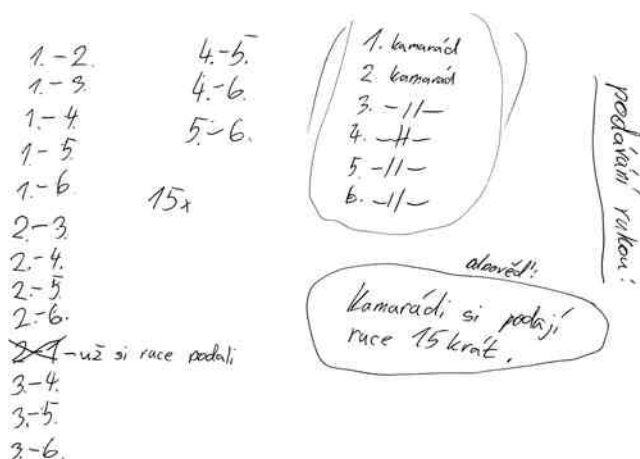 1.-2.
1.-3.
1.-4.
1.-5.
1.-6.
2.-3.
2.-4.
2.-5.
2.-6.
2-1 - už si ruce podali
3.-4.
3.-5.
3.-6.
4.-5.
4.-6.
5.-6.
15x
1. kamarád
2. kamarád
3. -//-
4. -//-
5. -//-
6. -//-
podávání rukou:
odpověď:
Kamarádi si podají
ruce 15 krát.